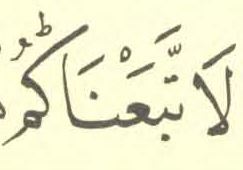 لَا تَّبَعْنَاكُمْ ؕ